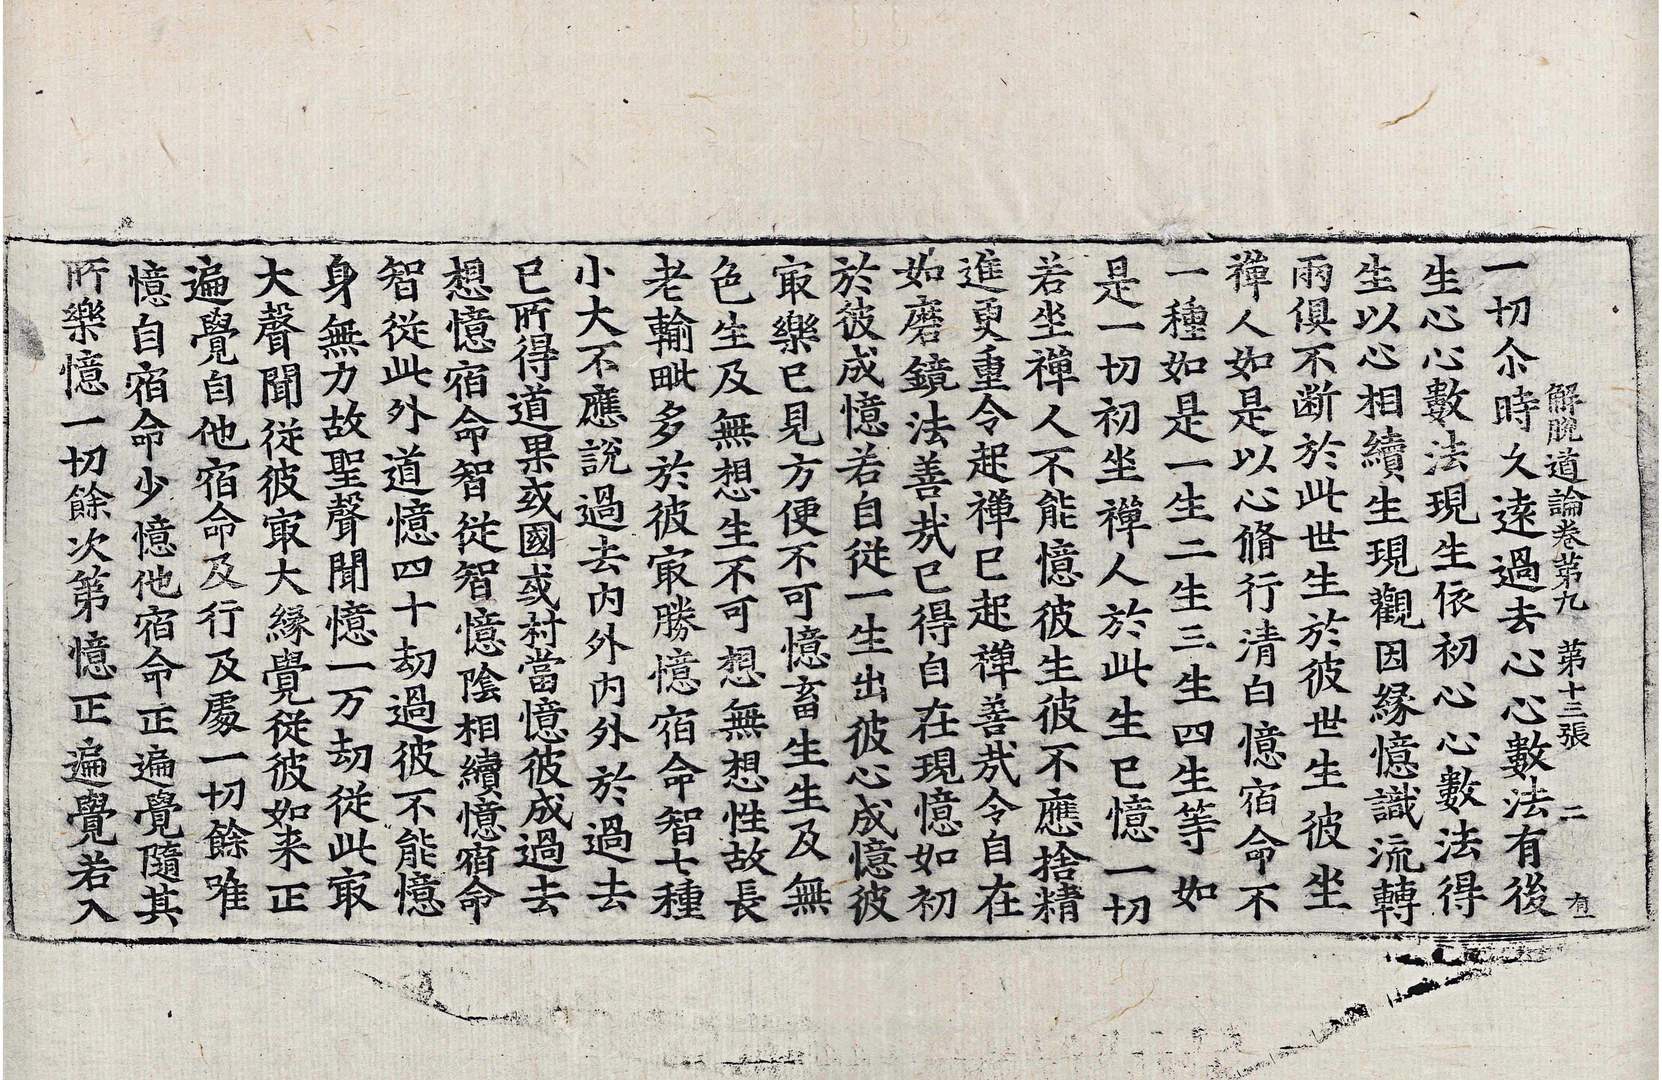 解脫道論卷第九　第十三張　二　有
一切尒時久遠過去心心數法有後
生心心數法現生依初心心數法得
生以心相續生現觀因緣憶識流轉
兩俱不断於此世生於彼世生彼坐
禪人如是以心脩行清白憶宿命不
一種如是一生二生三生四生等如
是一切初坐禪人於此生已憶一切
若坐禪人不能憶彼生彼不應捨精
進更重令起禪已起禪善㢤令自在
如磨鏡法善㢤已得自在現憶如初
於彼成憶若自從一生出彼心成憶彼
㝡樂已見方便不可憶畜生生及無
色生及無想生不可想無想性故長
老輸毗多於彼㝡勝憶宿命智七種
小大不應說過去内外内外於過去
已所得道果或國或村當憶彼成過去
想憶宿命智從智憶陰相續憶宿命
智從此外道憶四十劫過彼不能憶
身無力故聖聲聞憶一万劫從此㝡
大聲聞從彼㝡大緣覺從彼如来正
遍覺自他宿命及行及處一切餘唯
憶自宿命少憶他宿命正遍覺隨其
所樂憶一切餘次第憶正遍覺若入